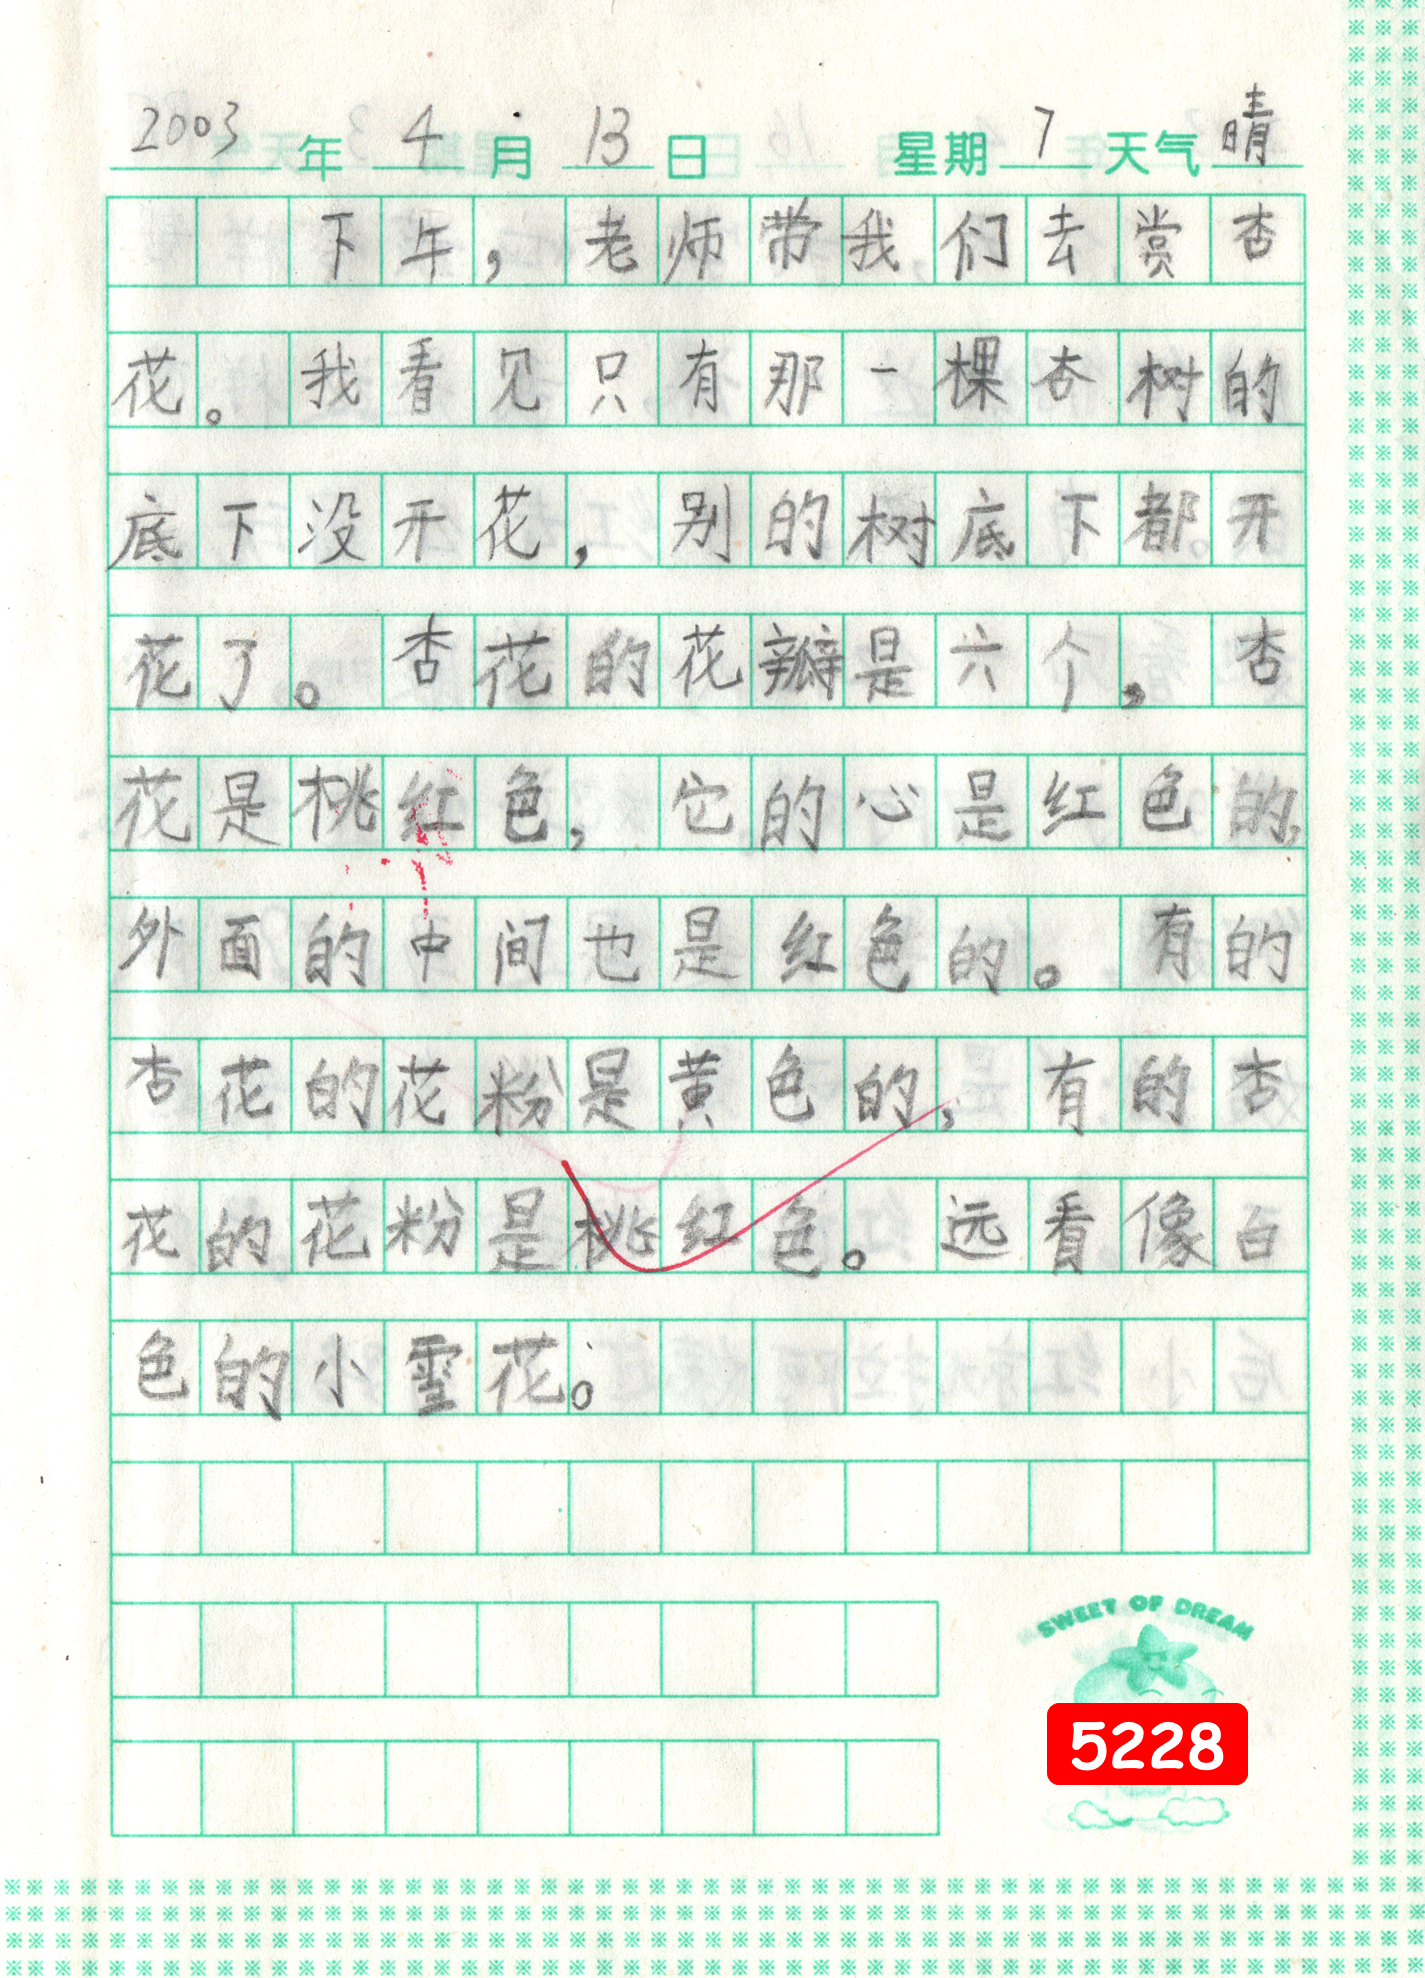 2003年4月13日 星期7天气晴
下午，老师带我们去赏杏
花。我看见只有那一棵杏树的
底下没开花，别的树底下都开
花了。杏花的花瓣是六个，杏
花是桃红色，它的心是红色的，
外面的中间也是红色的。有的
杏花的花粉是黄色的，有的杏
花的花粉是桃红色。远看像白
色的小雪花。
SWEET OF DREAM
5228